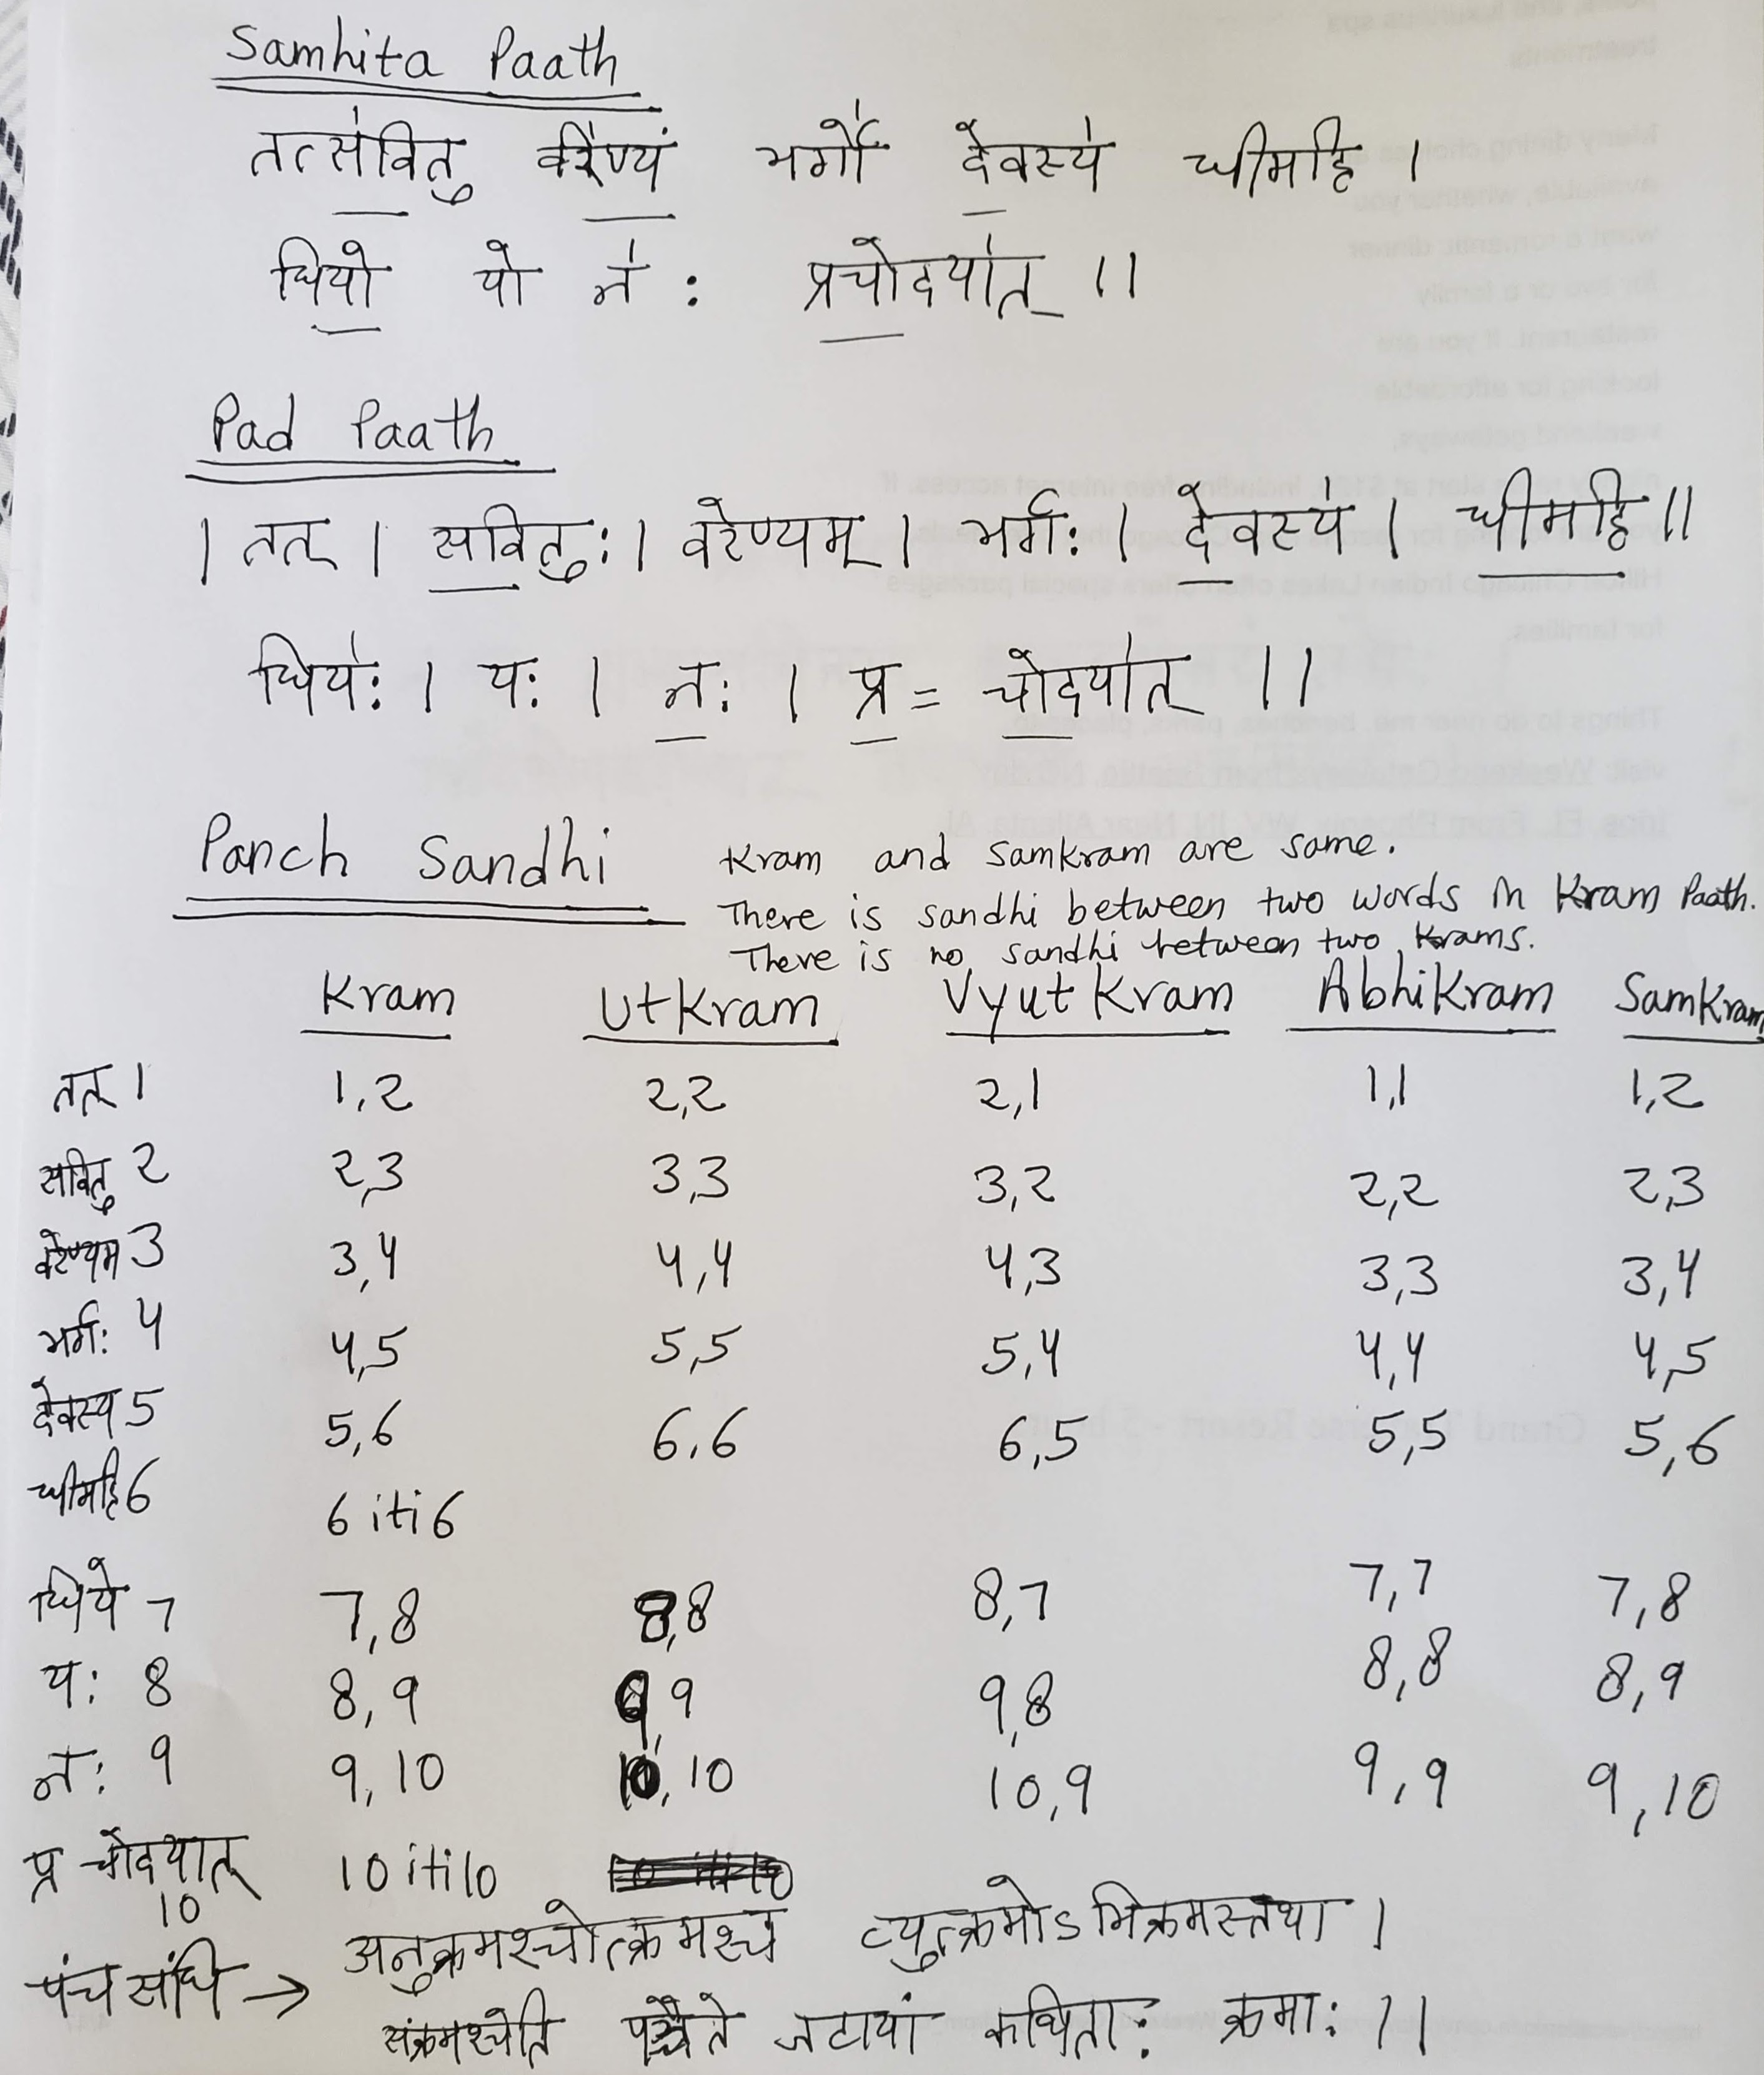 Samhita Paath
तत्स॑वि॒तु वरे॑ण्यं॒ भर्गो॑ दे॒वस्य॑ धीमहि ।
धियो॒ यो न॑ : प्रचो॒दया॑त् ।।
Pad Paath
। तत् । स॒वि॒तुः । वरेण्यम् । भर्गः॑ । दे॒वस्य॑ । धी॒म॒हि॒ ॥
धियः॑ । यः । नः॒ । प्र॒ = चो॒दया॑त् ।।
Panch Sandhi Kram and Samkram are same.
There is sandhi between two words in Kram Paath.
There is no sandhi between two Krams.
Kram UtKram VyutKram AbhiKram SamKram
तत् 1 1,2 2,2 2,1 1,1 1,2
सवितु 2 2,3 3,3 3,2 2,2 2,3
वरेण्यम 3 3,4 4,4 4,3 3,3 3,4
भर्गः 4 4,5 5,5 5,4 4,4 4,5
देवस्य 5 5,6 6,6 6,5 5,5 5,6
धीमहि 6 6 iti 6
धिये 7 7,8 8,8 8,7 7,7 7,8
यः 8 8,9 9,9 9,8 8,8 8,9
नः 9 9,10 10,10 10,9 9,9 9,10
प्र चोदयात् 10 10 iti 10
पंच संधि → अनुक्रमश्चोत्क्रमश्च व्युत्क्रमोऽभिक्रमस्तथा ।
संक्रमश्चेति पञ्चैते जटायां कथिताः क्रमाः ।।